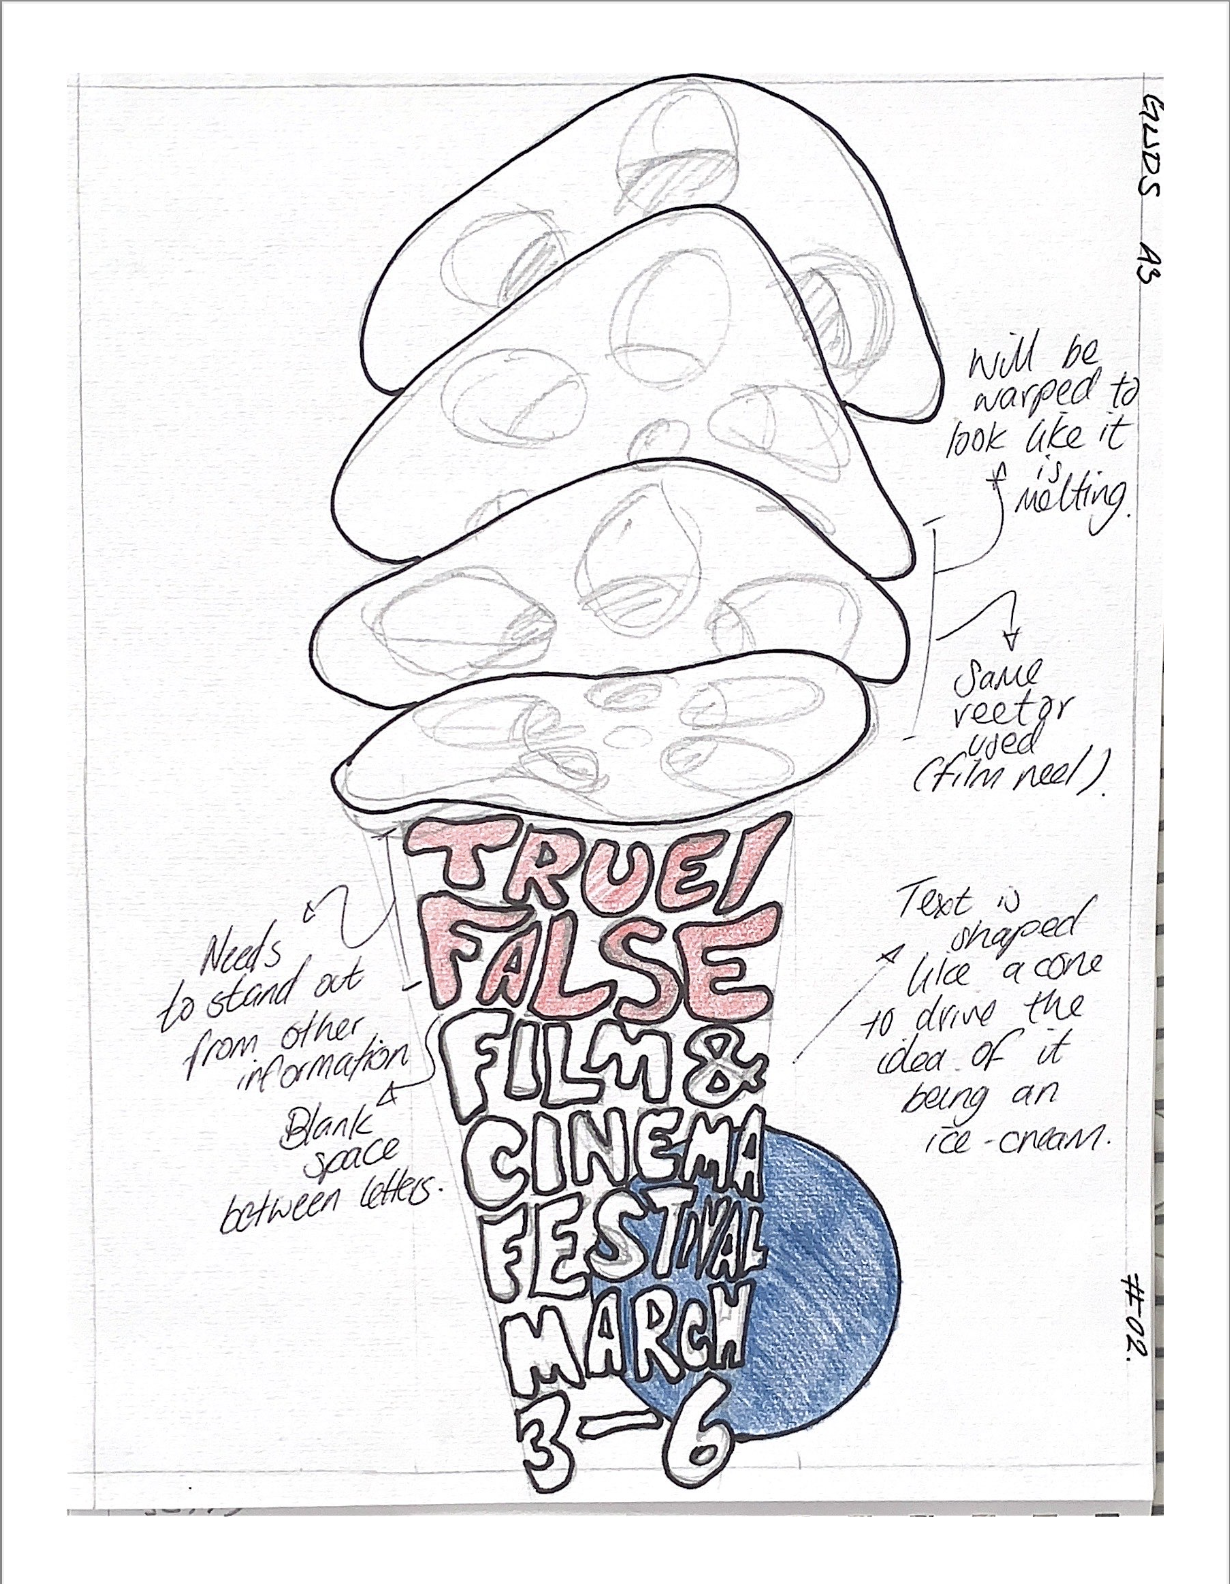 GWDS A3
Will be
warped to
look like it
is
melting.
Same
vector
used
(film reel).
TRUE/
FALSE
FILM &
CINEMA
FESTIVAL
MARCH
3-6
Needs
to stand out
from other
information
Blank
space
between letters.
Text is
shaped
like a cone
to drive the
idea of it
being an
ice-cream.
#02.